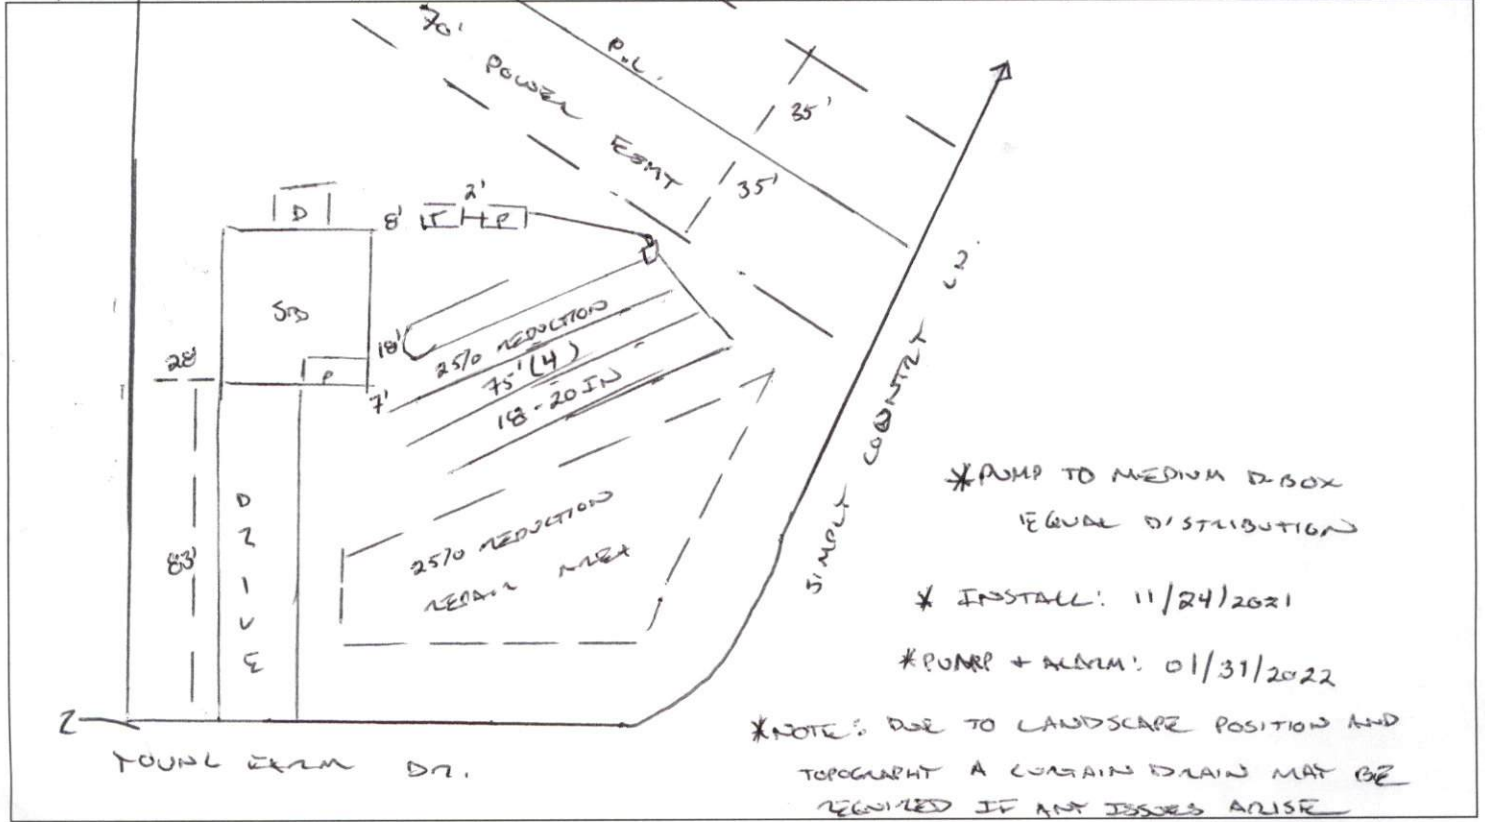 70' POWER ESMT
P.L.
35'
35'
D
8'
T
2'
P
SBD
18'
25% REDUCTION
75' (4)
18-20 IN
28'
P
7'
DRIVE
83'
25% REDUCTION
REPAIR AREA
SIMPLY COUNTRY LN.
*PUMP TO MEDIUM D-BOX
EQUAL DISTRIBUTION
* INSTALL: 11/24/2021
*PUMP + ALARM: 01/31/2022
*NOTE: DUE TO LANDSCAPE POSITION AND
TOPOGRAPHY A CURTAIN DRAIN MAY BE
REQUIRED IF ANY ISSUES ARISE
YOUNG FARM DR.